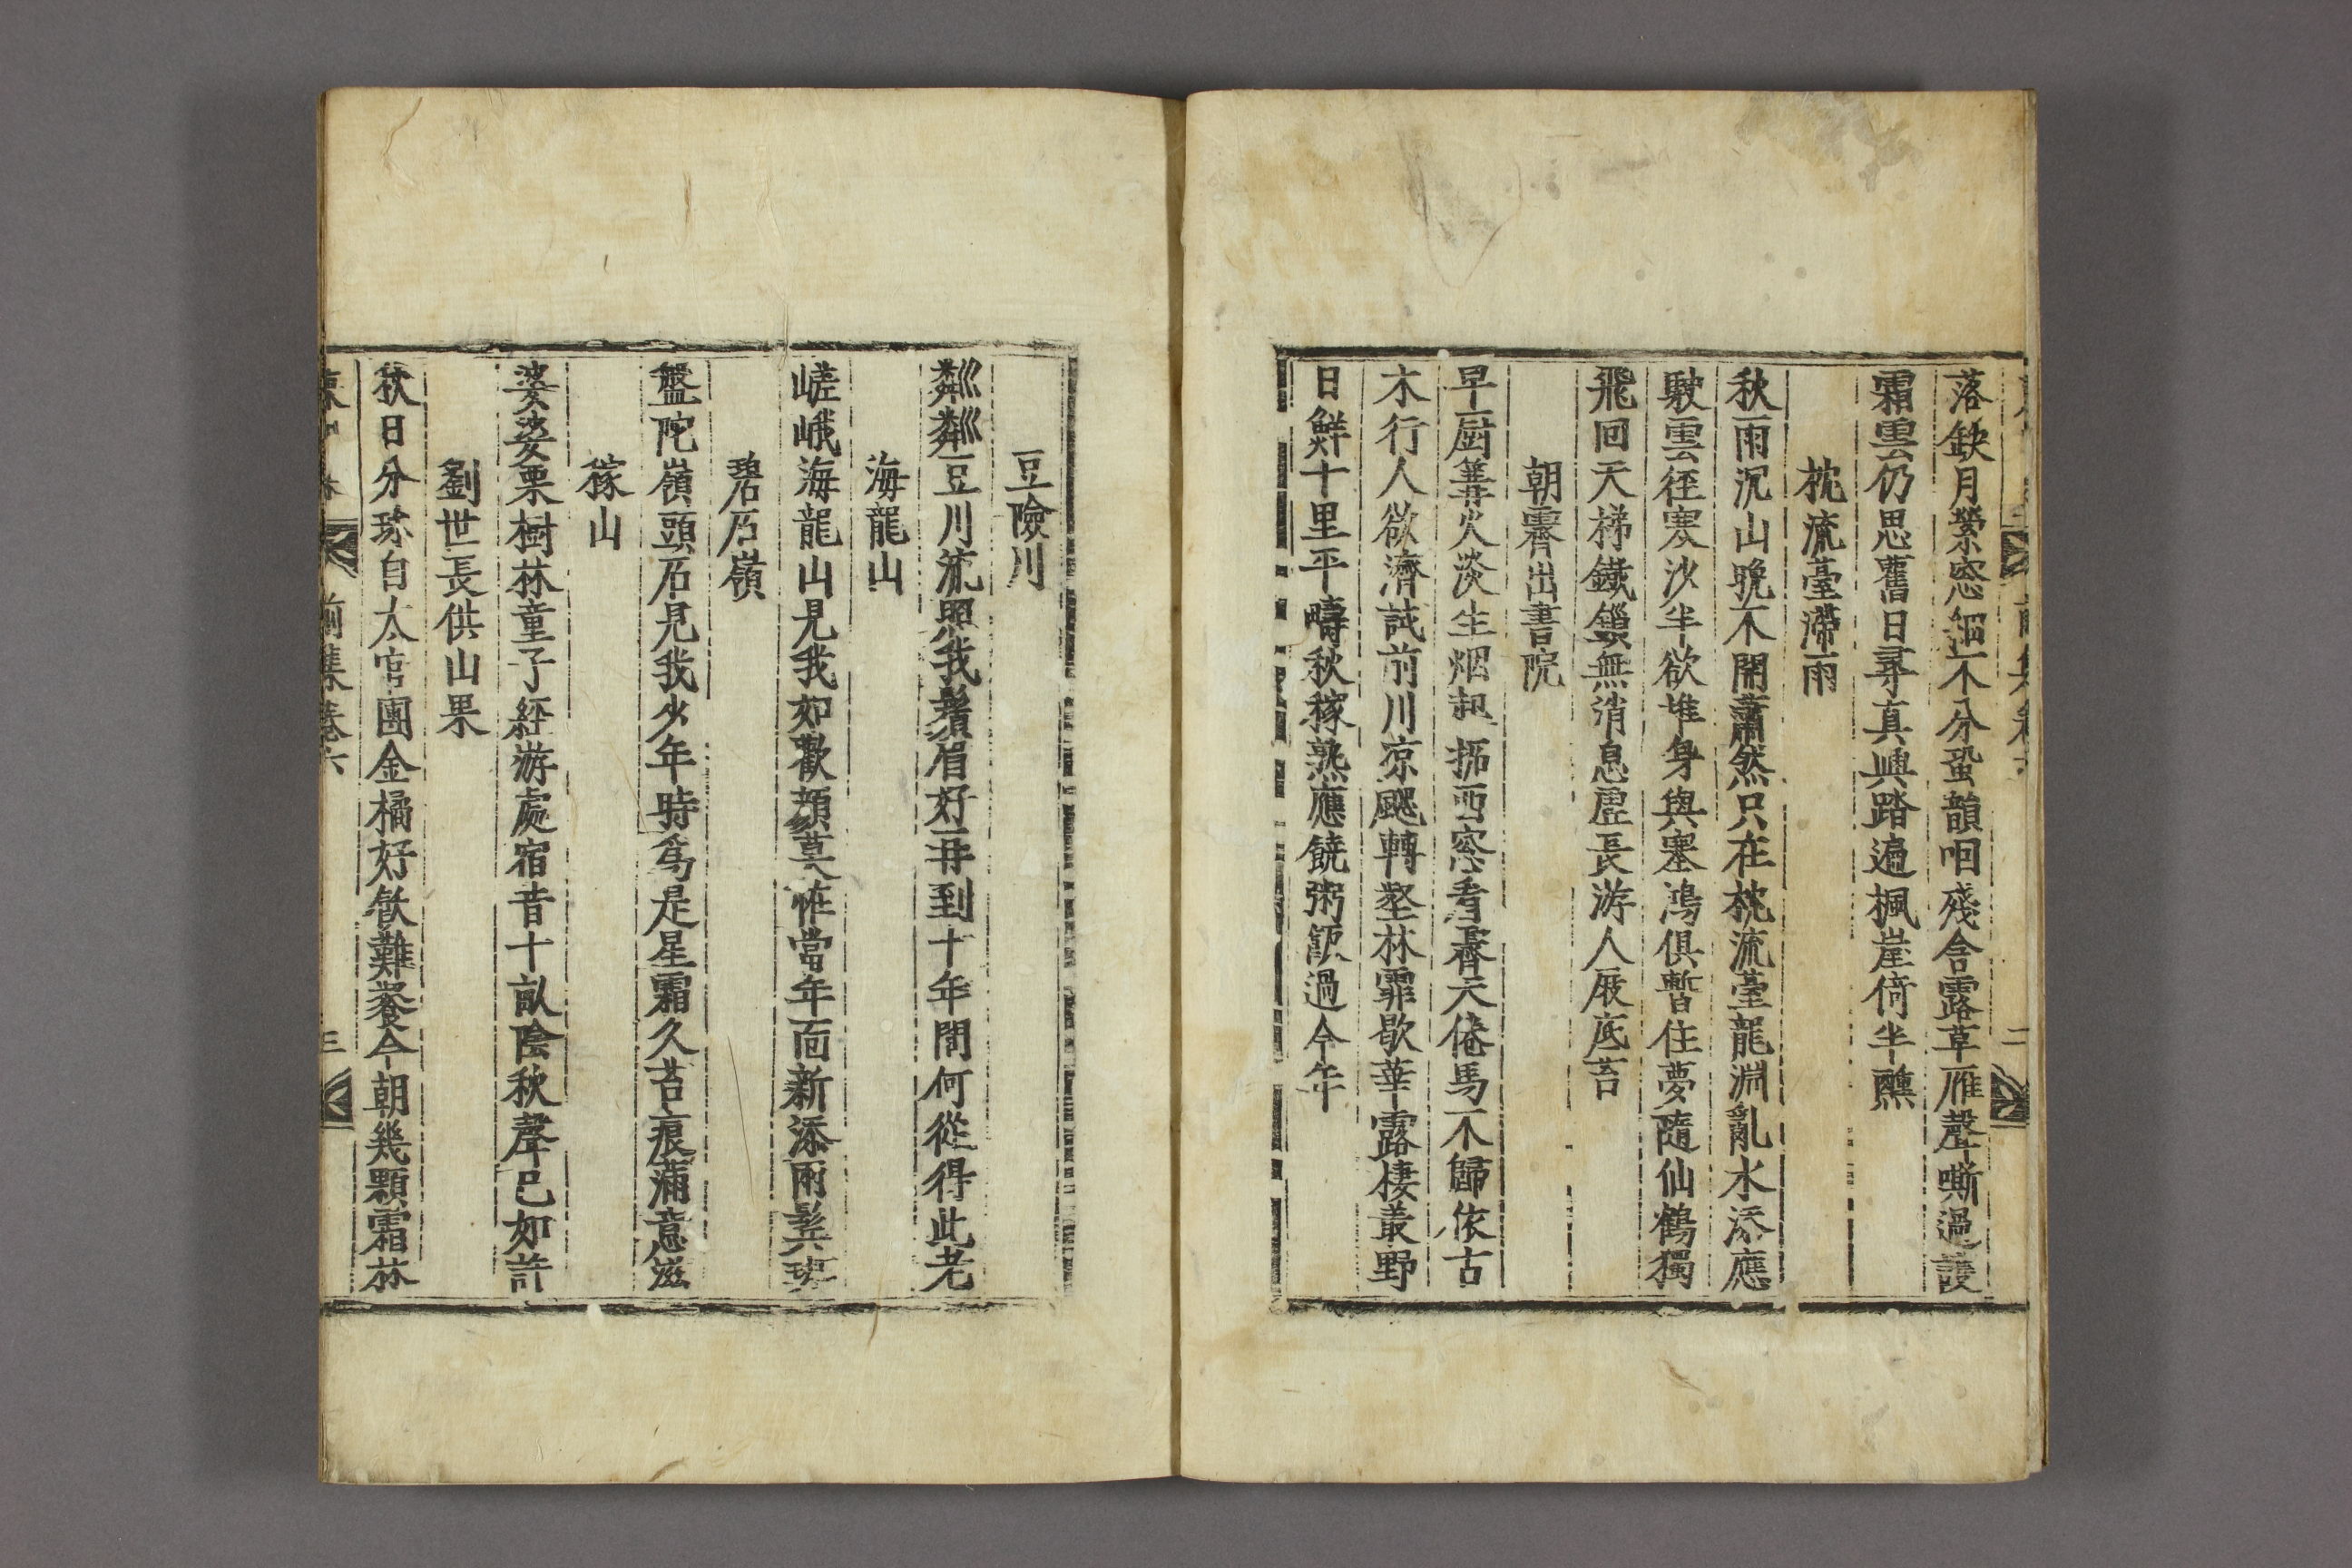 落缺月縈窓細不分蛩韻咽殘含露草雁聲嘶過護
霜雲仍思舊日尋真興踏遍楓崖倚半醺
枕流臺滯雨
秋雨沉山晚不開蕭然只在枕流臺龍淵亂水添應
駛雲徑寒沙半欲堆身與塞鴻俱暫住夢隨仙鶴獨
飛回天梯鐵鎖無消息虛長游人屐底苔
朝霽出書院
早厨篝火淡生烟起拓西窓看霽天倦馬不歸依古
木行人欲濟試前川凉飇轉壑林霏歇華露棲叢野
日鮮十里平疇秋稼熟應饒粥飯過今年
豆險川
粼粼豆川流照我鬚眉好再到十年間何從得此老
海龍山
嵯峨海龍山見我如歡顔莫恠當年面新添兩鬂斑
碧石嶺
盤陀嶺頭石見我少年時爲是星霜久苔痕滿意滋
稼山
婆娑栗樹林童子經游處宿昔十畝陰秋聲已如許
劉世長供山果
秋日分珍自太官團金橘好飲難餐今朝幾顆霜林
前集卷六
三